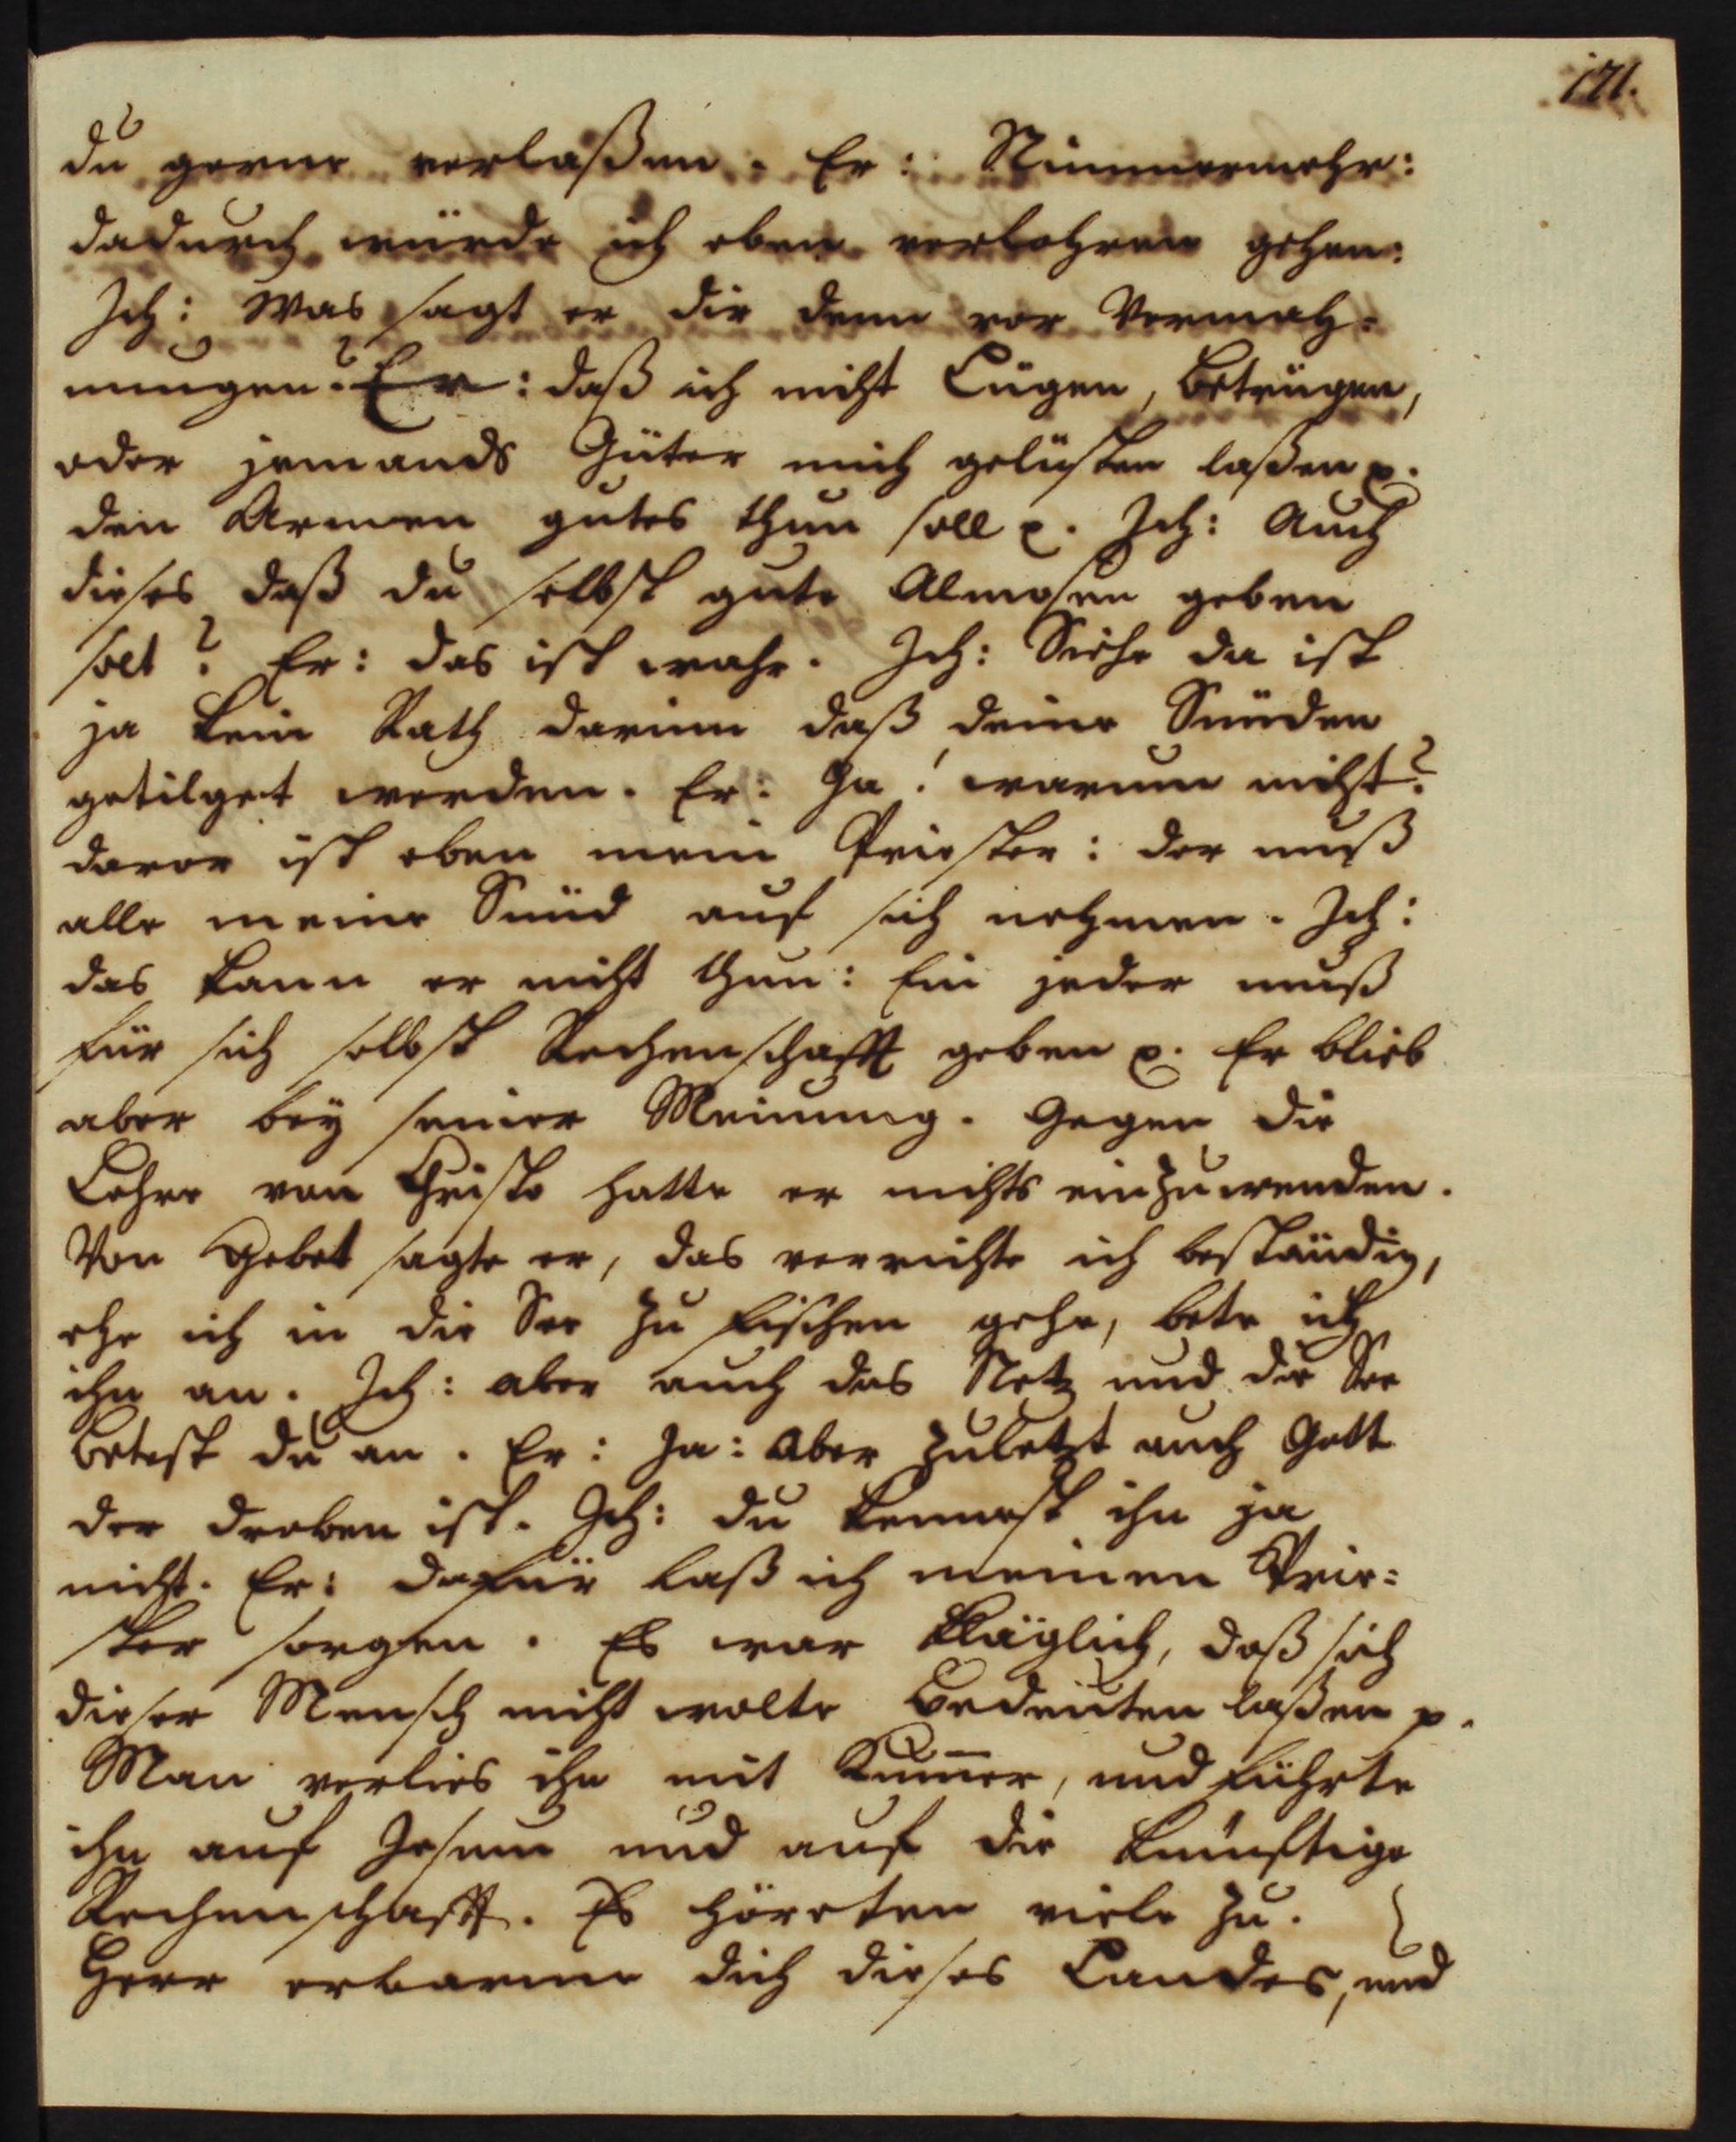 171.
du gerne verlaßen. Er: Nimmermehr:
dadurch würde ich eben verlohren gehen:
Ich: Was sagt er dir denn vor Vermah-
nungen? Er: daß ich nicht Lügen, betrügen,
oder jemands Güter mich gelüsten laßen p.
den Armen gutes thun soll p. Ich: Auch
dieses daß du selbst gute Almosen geben
solt? Er: das ist wahr. Ich: Siehe da ist
ja kein Rath darinn daß deine Sünden
getilget werden. Er: Ja! warum nicht?
davor ist eben mein Priester: der muß
alle meine Sünd auf sich nehmen. Ich:
das kann er nicht thun: Ein jeder muß
für sich selbst Rechenschafft geben p. Er blieb
aber bey seiner Meinung. Gegen die
Lehre von Christo hatte er nichts einzuwenden.
Von Gebet sagte er, das verrichte ich beständig,
ehe ich in die See zu fischen gehe, bete ich
ihn an. Ich: aber auch das Netz und die See
betest du an. Er: Ja: Aber zuletzt auch Gott
der droben ist. Ich: du kennest ihn ja
nicht. Er: dafür laß ich meinen Prie-
ster sorgen. Es war kläglich, daß sich
dieser Mensch nicht wolte bedeuten laßen p.
Man verlies ihn mit Kum̄er, und führte
ihn auf Jesum und auf die künftige
Rechenschafft. Es höreten viele zu.
Herr erbarme dich dieses Landes, und